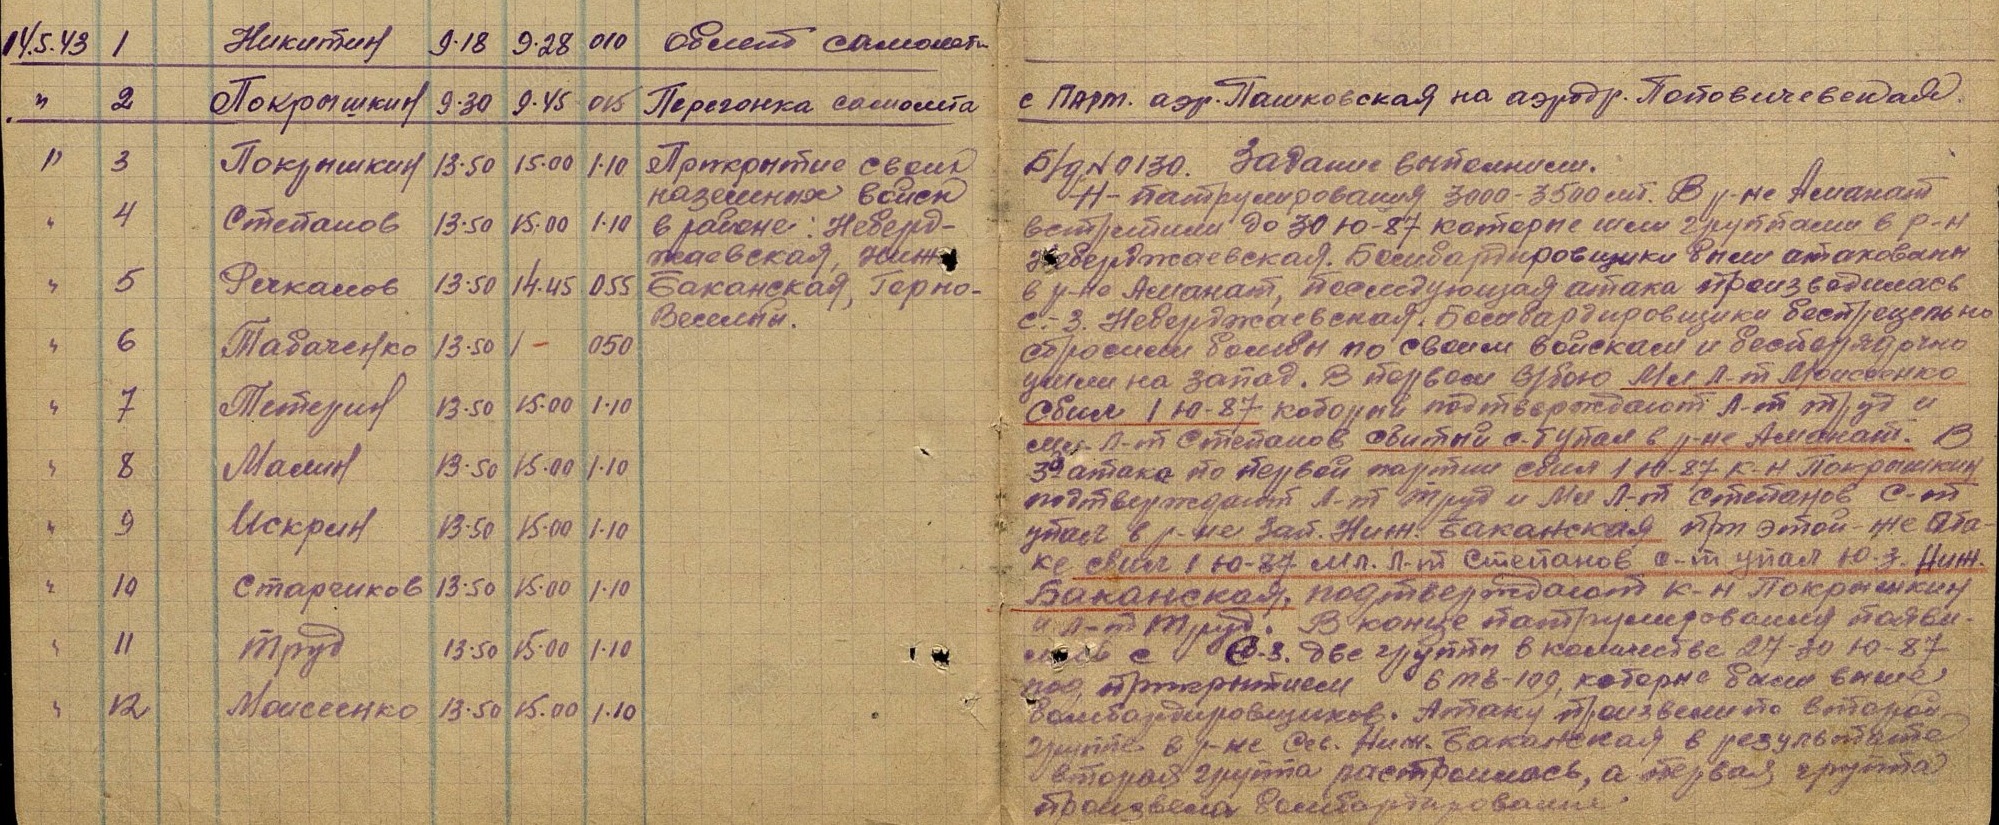 14.5.43 1 Никитин 9-18 9-28 010 Облет самолета
" 2 Покрышкин 9-30 9-45 015 Перегонка самолета с Парт. аэр. Пашковская на аэродр. Поповичевская.
" 3 Покрышкин 13-50 15-00 1-10 Прикрытие своих
наземных войск
" 4 Степанов 13-50 15-00 1-10 в районе: Неберд-
жаевская, Ниж.
" 5 Речкалов 13-50 14-45 055 Баканская, Горно-
Веселый.
" 6 Табаченко 13-50 / - 050
" 7 Тетерин 13-50 15-00 1-10
" 8 Малин 13-50 15-00 1-10
" 9 Искрин 13-50 15-00 1-10
" 10 Старчиков 13-50 15-00 1-10
" 11 Труд 13-50 15-00 1-10
" 12 Моисеенко 13-50 15-00 1-10
Б/д N0130. Задание выполнили.
Н- патрулирования 3000-3500 мт. В р-не Аманат
встретили до 30 Ю-87 которые шли группами в р-н
Неберджаевская. Бомбардировщики были атакованы
в р-не Аманат, последующая атака производилась
с.-з. Неберджаевская. Бомбардировщики бесприцельно
сбросили бомбы по своим войскам и беспорядочно
ушли на запад. В первом в/бою Мл Л-т Моисеенко
сбил 1 Ю-87 который подтверждают Л-т Труд и
мл. Л-т Степанов сбитый с-т упал в р-не Аманат. В
3й атаке по первой партии сбил 1 Ю-87 к-н Покрышкин
подтверждают Л-т Труд и Мл Л-т Степанов С-т
упал в р-не Зап. Ниж. Баканская при этой-же Ата-
ке сбил 1 Ю-87 Мл. Л-т Степанов с-т упал Ю.З. Ниж.
Баканская. подтверждают К-н Покрышкин
и Л-т Труд. В конце патрулирования появи-
лись с С-З. две группы в количестве 27-30 Ю-87
под прикрытием 6 МЕ-109, которые были выше
бомбардировщиков. Атаку произвели по второй
группе в р-не Сев. Ниж. Баканская в результате
вторая группа растроилась, а первая группа
произвела бомбардирование.